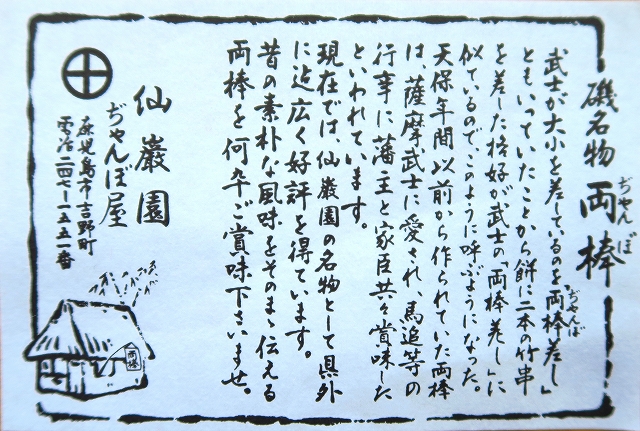 磯名物 両棒
ぢゃんぼ
武士が大小を差しているのを「両棒差し」
ぢゃんぼ
ともいっていたことから餅に二本の竹串
を差した格好が武士の「両棒差し」に
似ているので、このように呼ぶようになった。
天保年間以前から作られていた両棒
は、薩摩武士に愛され、馬追等の
行事に藩主と家臣共々賞味した
といわれています。
現在では、仙巌園の名物として県外
に迄広く好評を得ています。
昔の素朴な風味をそのまゝ伝える
両棒を何卒ご賞味下さいませ。
仙巌園
ぢゃんぼ屋
鹿児島市吉野町
電冶二四七ー一五五一番
両棒